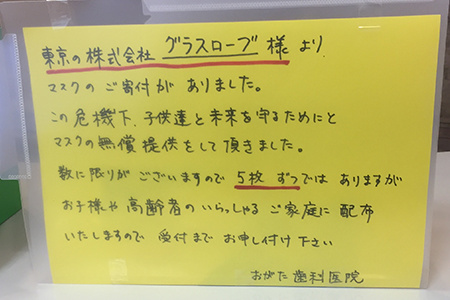 東京の株式会社 グラスローブ 様 より
マスクの ご寄付が ありました。
この 危機下、子供達と未来を守るためにと
マスクの無償提供をして頂きました。
数に限りが ございますので 5枚 ずつでは ありますが
お子様や 高齢者の いらっしゃる ご家庭に 配布
いたしますので 受付まで お申し付け下さい
おがた歯科医院